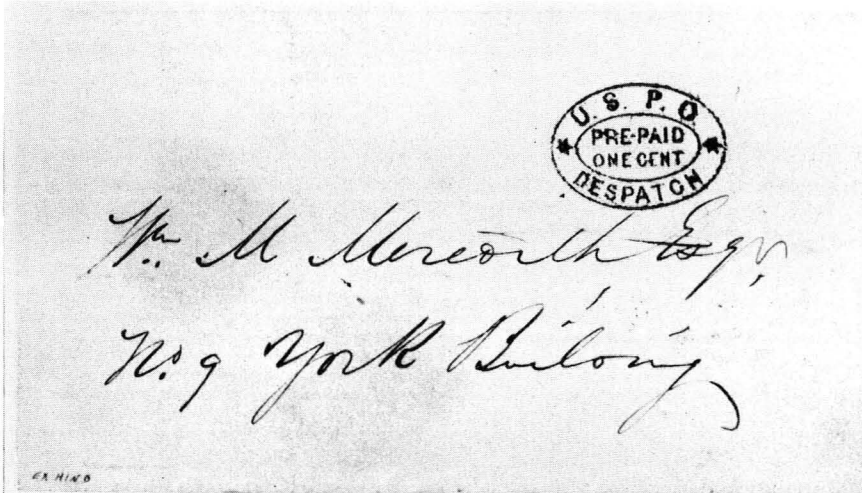 U. S. P. O.
PRE-PAID
ONE CENT
DESPATCH
Wm. M Meredith, Esqr.
No. 9 York Building
EX HIND